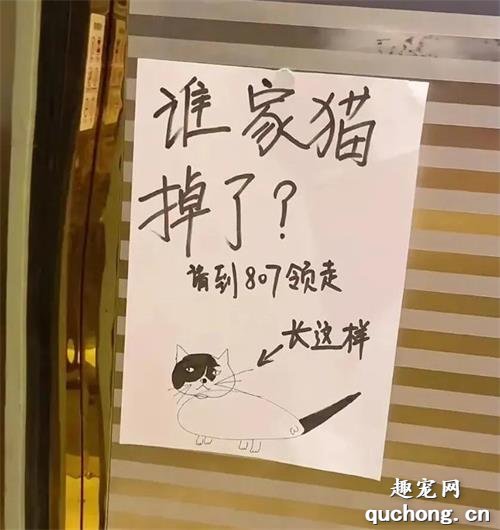 谁家猫
掉了？
请到807领走
长这样
趣宠网
quchong.cn